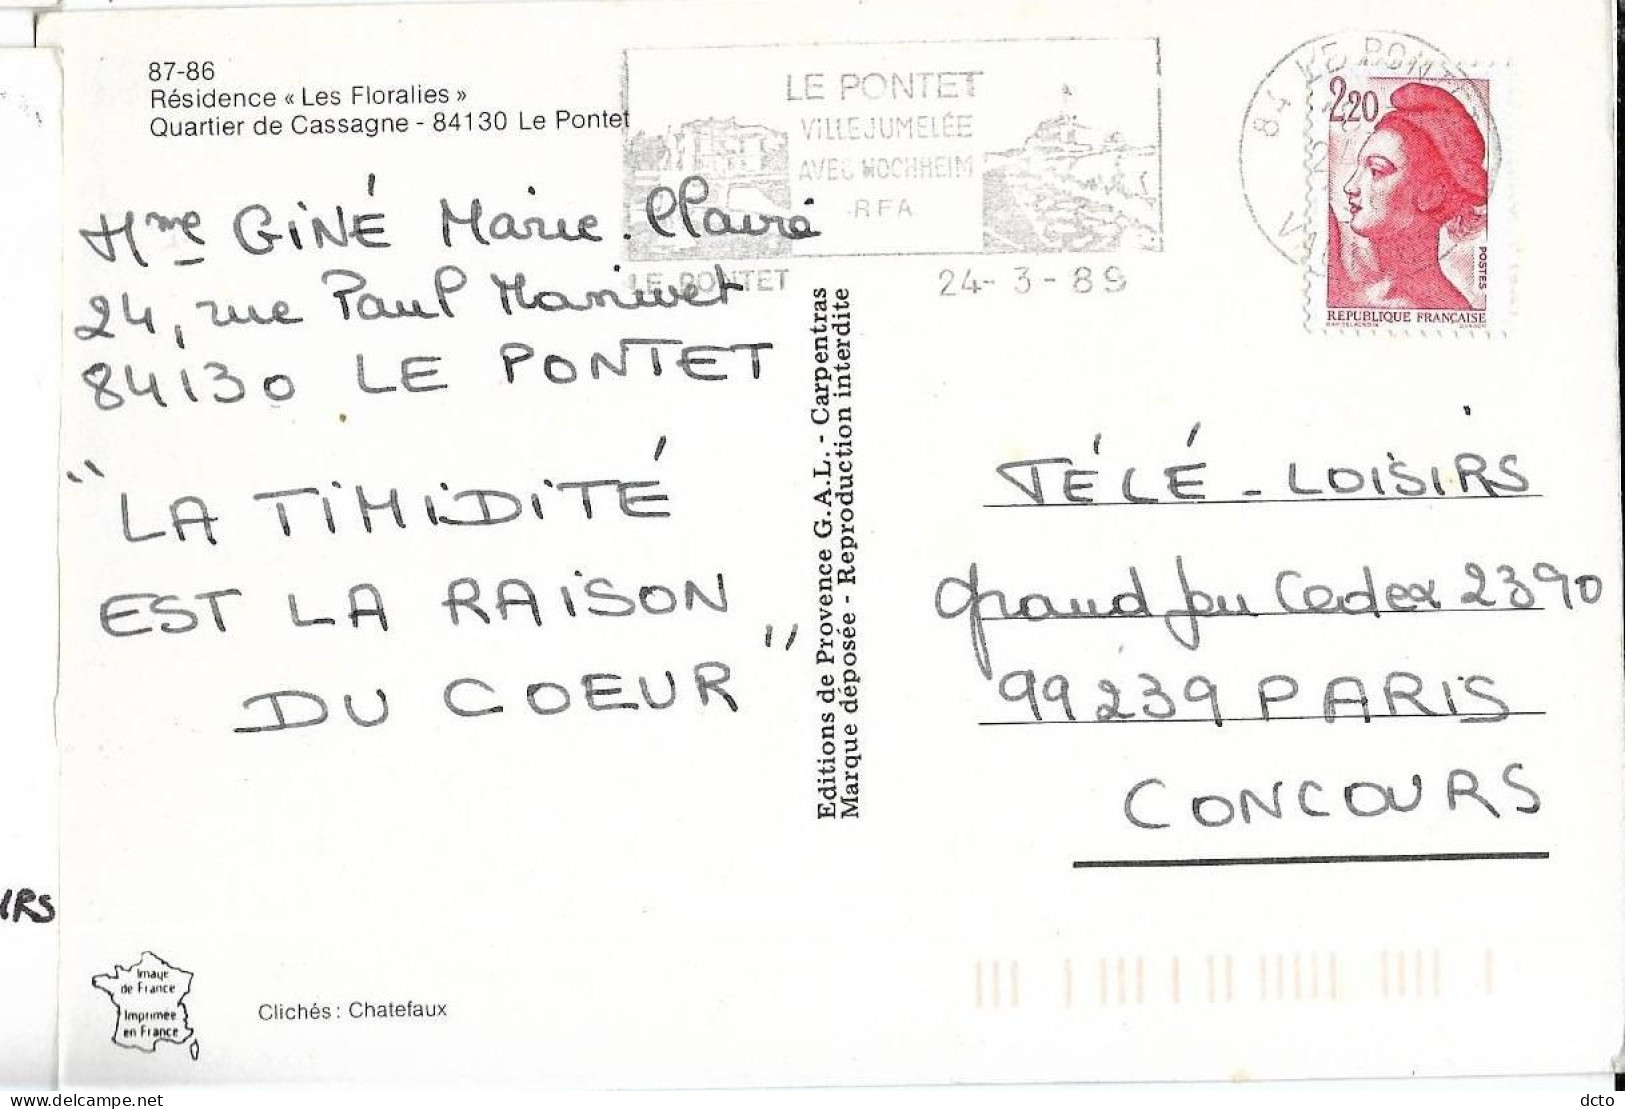 87-86
Résidence « Les Floralies »
Quartier de Cassagne - 84130 Le Pontet
LE PONTET
ViLLE JUMELÉE
AVEC HOCHHEIM
RFA
LE PONTET
24-3-89
2,20
POSTES
REPUBLIQUE FRANÇAISE
Mme GiNÉ Marie.Claire
24, rue Paul Manivet
84130 LE PONTET
"LA TiMiDiTÉ
EST LA RAiSON
DU COEUR"
Editions de Provence G.A.L. - Carpentras
Marque déposée - Reproduction interdite
TÉLÉ-LOiSiRS
Grand jeu Cedex 2390
99239 PARiS
CONCOURS
IRS
Image
de France
Imprimée
en France
Clichés : Chatefaux
dcto